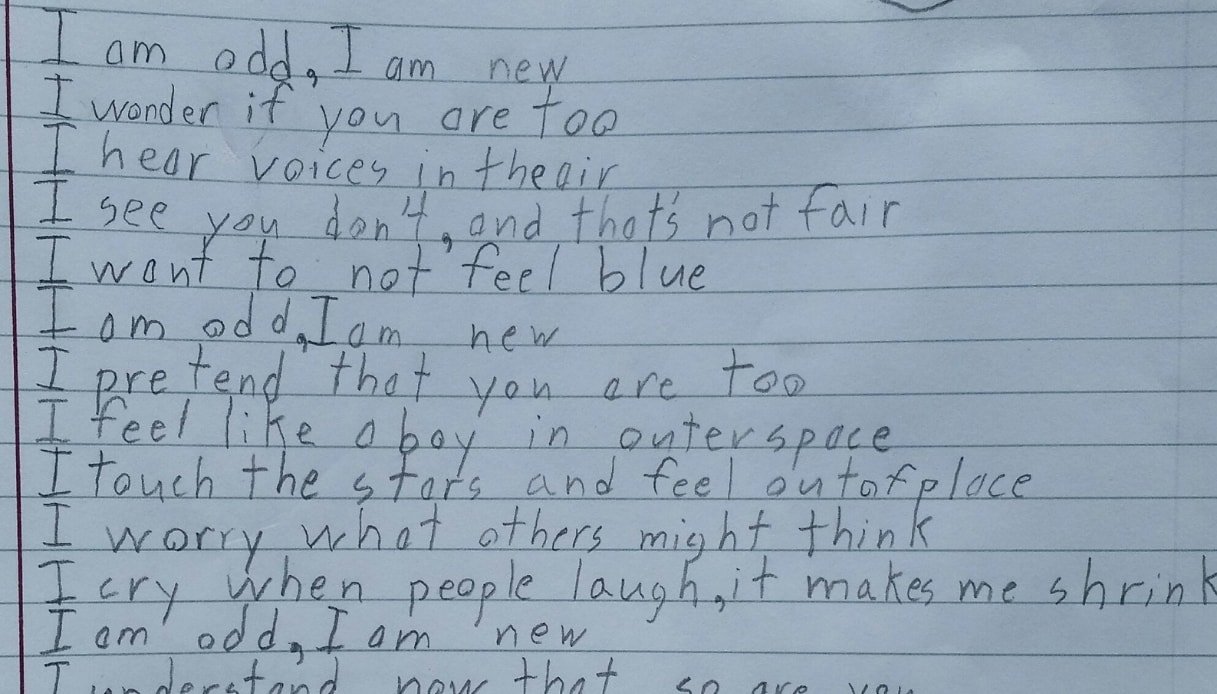 I am odd, I am new
I wonder if you are too
I hear voices in the air
I see you don't, and that's not fair
I want to not feel blue
I am odd, I am new
I pretend that you are too
I feel like a boy in outerspace
I touch the stars and feel out of place
I worry what others might think
I cry when people laugh, it makes me shrink
I am odd, I am new
I understand now that so are you